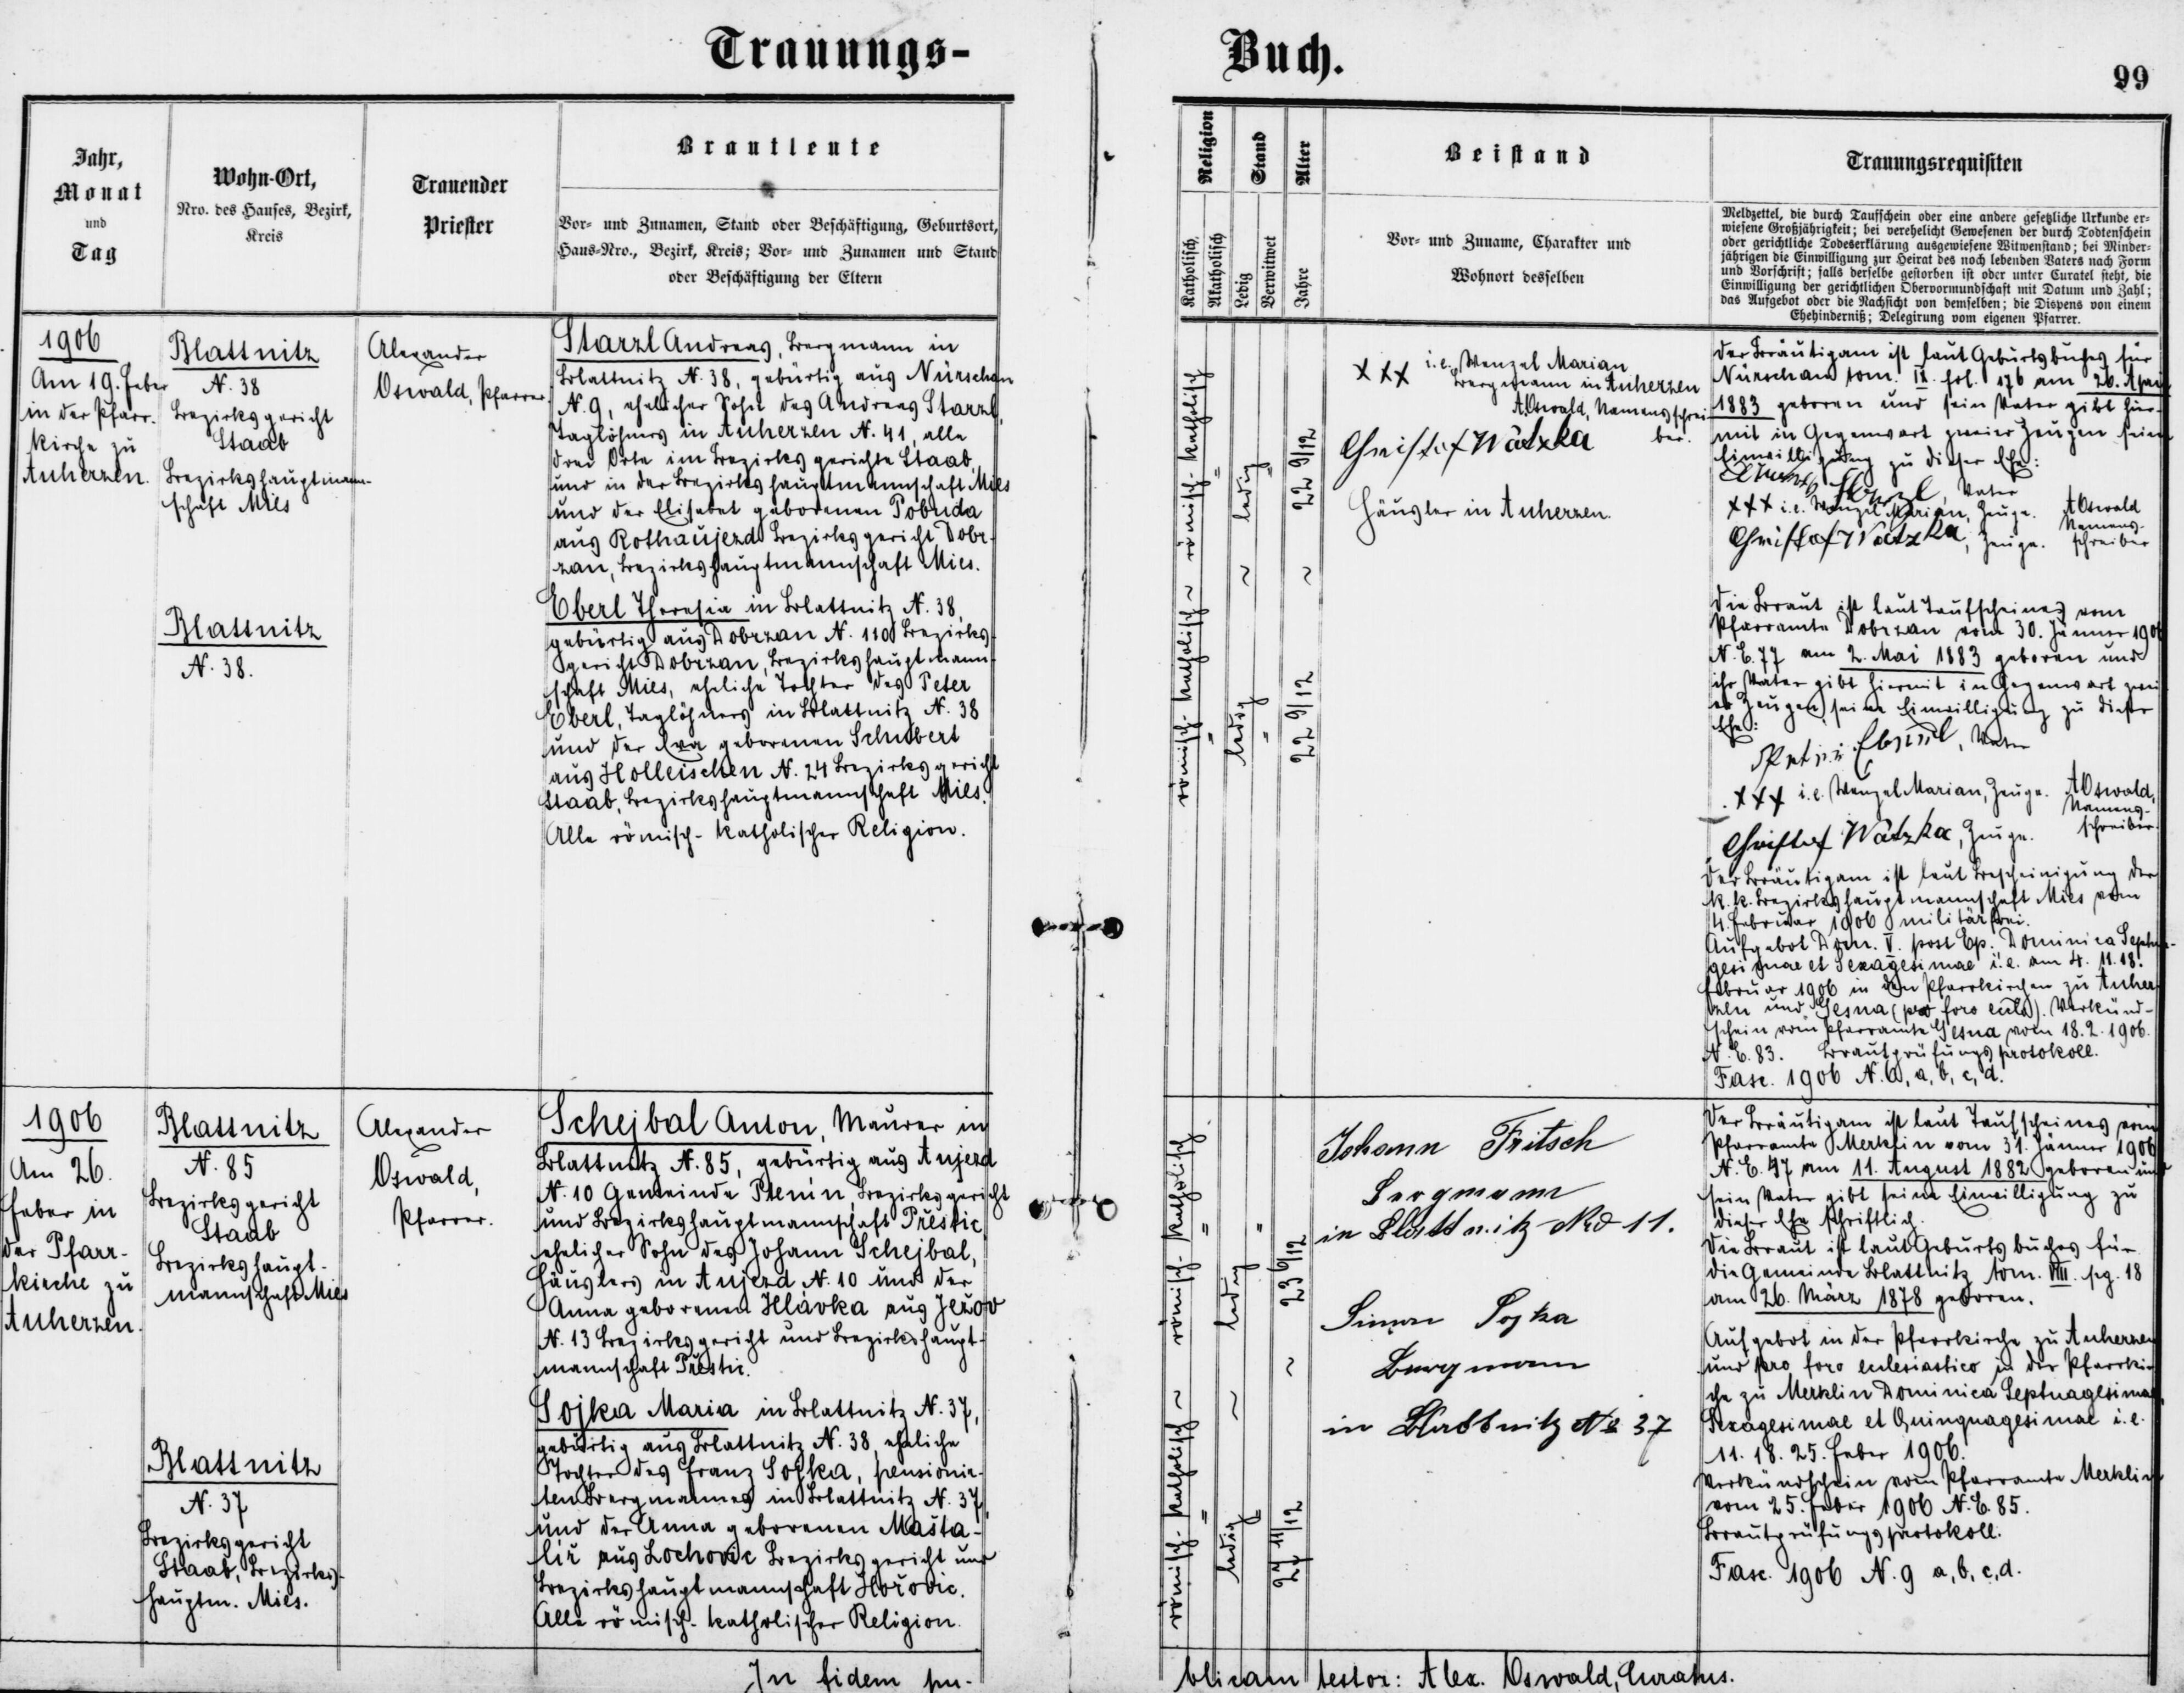 Trauungs-
Buch.
99
Jahr,
Monat
und
Tag
Wohn-Ort,
Nro. des Hauses, Bezirk,
Kreis
Trauender
Priester
Brautleute
Vor- und Zunamen, Stand oder Beschäftigung, Geburtsort,
Haus-Nro., Bezirk, Kreis; Vor- und Zunamen und Stand
oder Beschäftigung der Eltern
Religion
Katholisch
Akatholisch
Stand
Ledig
Verwitwet
Alter
Jahre
Beistand
Vor- und Zuname, Charakter und
Wohnort desselben
Trauungsrequisiten
Meldzettel, die durch Taufschein oder eine andere gesetzliche Urkunde er-
wiesene Großjährigkeit; bei verehelicht Gewesenen der durch Todtenschein
oder gerichtliche Todeserklärung ausgewiesene Witwenstand; bei Minder-
jährigen die Einwilligung zur Heirat des noch lebenden Vaters nach Form
und Vorschrift; falls derselbe gestorben ist oder unter Curatel steht, die
Einwilligung der gerichtlichen Obervormundschaft mit Datum und Zahl;
das Aufgebot oder die Nachsicht von demselben; die Dispens von einem
Ehehinderniß; Delegirung vom eigenen Pfarrer.
1906
Am 19. Feber
in der Pfarr-
kirche zu
Auherzen.
Blattnitz
N. 38
Bezirksgericht
Staab
Bezirkshauptmann-
schaft Mies
Blattnitz
N. 38.
Alexander
Oswald, Pfarrer.
Starzl Andreas, Bergmann in
Blattnitz N. 38, gebürtig aus Nürschan
N. 9, ehelicher Sohn des Andreas Starzl,
Taglöhners in Auherzen N. 41, alle
drei Orte im Bezirksgerichte Staab
und in der Bezirkshauptmannschaft Mies
und der Elisabet geborenen Pobuda
aus Rothaujezd Bezirksgericht Dobr-
zan, Bezirkshauptmannschaft Mies.
Eberl Theresia in Blattnitz N. 38,
gebürtig aus Dobrzan N. 110 Bezirks-
gericht Dobrzan, Bezirkshauptmann-
schaft Mies, eheliche Tochter des Peter
Eberl, Taglöhners in Blattnitz N. 38
und der Eva geborenen Schubert
aus Holleischen N. 24 Bezirksgericht
Staab, Bezirkshauptmannschaft Mies.
Alle römisch-katholischer Religion.
römisch-katholisch ~ römisch-katholisch
ledig ~ ledig
22 9/12 ~ 22 9/12
XXX i.e. Wenzel Marian
Bergmann in Auherzen
A. Oswald, Namensschrei-
ber.
Christof Watzka
Häusler in Auherzen.
Der Bräutigam ist laut Geburtsbuches für
Nürschan tom. II. fol. 176 am 26. April
1883 geboren und sein Vater gibt hier-
mit in Gegenwart zweier Zeugen seine
Einwilligung zu dieser Ehe:
Starzl, Vater
XXX i.e. Wenzel Marian, Zeuge. A Oswald
Namens-
schreiber
Christof Watzka, Zeuge.
Die Braut ist laut Taufscheines vom
Pfarramte Dobrzan vom 30. Jänner 1906
N. E. 77 am 2. Mai 1883 geboren und
ihr Vater gibt hiermit in Gegenwart zwei-
er Zeugen seine Einwilligung zu dieser
Ehe:
Eberl, Vater
XXX i.e. Wenzel Marian, Zeuge. A Oswald,
Namens-
schreiber.
Christof Watzka, Zeuge.
Der Bräutigam ist laut Bescheinigung der
k. k. Bezirkshauptmannschaft Mies vom
4. Februar 1906 militärfrei.
Aufgebot Dom. V. post Ep. Dominica Septua-
gesimae et Sexagesimae i.e. am 4. 11. 18.
Februar 1906 in den Pfarrkirchen zu Auher-
zen und Gesna (pro foro eccla). Verkünd-
schein vom Pfarramte Gesna vom 18. 2. 1906.
N. E. 83. Brautprüfungsprotokoll.
Fasc. 1906 N. 6, a, b, c, d.
1906
Am 26.
Feber in
der Pfarr-
kirche zu
Auherzen.
Blattnitz
N. 85
Bezirksgericht
Staab
Bezirkshaupt-
mannschaft Mies
Blattnitz
N. 37
Bezirksgericht
Staab, Bezirks-
hauptm. Mies.
Alexander
Oswald,
Pfarrer.
Schejbal Anton, Maurer in
Blattnitz N. 85, gebürtig aus Aujezd
N. 10 Gemeinde Ptenín, Bezirksgericht
und Bezirkshauptmannschaft Přestic,
ehelicher Sohn des Johann Schejbal,
Häuslers in Aujezd N. 10 und der
Anna geborenen Hlávka aus Ježov
N. 13 Bezirksgericht und Bezirkshaupt-
mannschaft Přestic.
Sojka Maria in Blattnitz N. 37,
gebürtig aus Blattnitz N. 38, eheliche
Tochter des Franz Sojka, pensionir-
ten Bergmannes in Blattnitz N. 37
und der Anna geborenen Mašta-
líř aus Lochovic Bezirksgericht und
Bezirkshauptmannschaft Hořovic.
Alle römisch-katholischer Religion.
römisch-katholisch ~ römisch-katholisch
ledig ~ ledig
23 6/12 ~ 27 11/12
Johann Fritsch
Bergmann
in Blattnitz Nro 11.
Simon Sojka
Bergmann
in Blattnitz No 37
Der Bräutigam ist laut Taufscheines vom
Pfarramte Merklin vom 31. Jänner 1906
N. E. 47 am 11. August 1882 geboren und
sein Vater gibt seine Einwilligung zu
dieser Ehe schriftlich.
Die Braut ist laut Geburtsbuches für
die Gemeinde Blattnitz tom. VIII. pg. 18
am 26. März 1878 geboren.
Aufgebot in der Pfarrkirche zu Auherzen
und pro foro ecclesiastico in der Pfarrkir-
che zu Merklin Dominica Septuagesimae,
Sexagesimae et Quinquagesimae i.e.
11. 18. 25. Feber 1906.
Verkündschein vom Pfarramte Merklin
vom 25. Feber 1906 N. E. 85.
Brautprüfungsprotokoll.
Fasc. 1906 N. 9 a, b, c, d.
In fidem pu-
blicam testor: Alex. Oswald, Curatus.